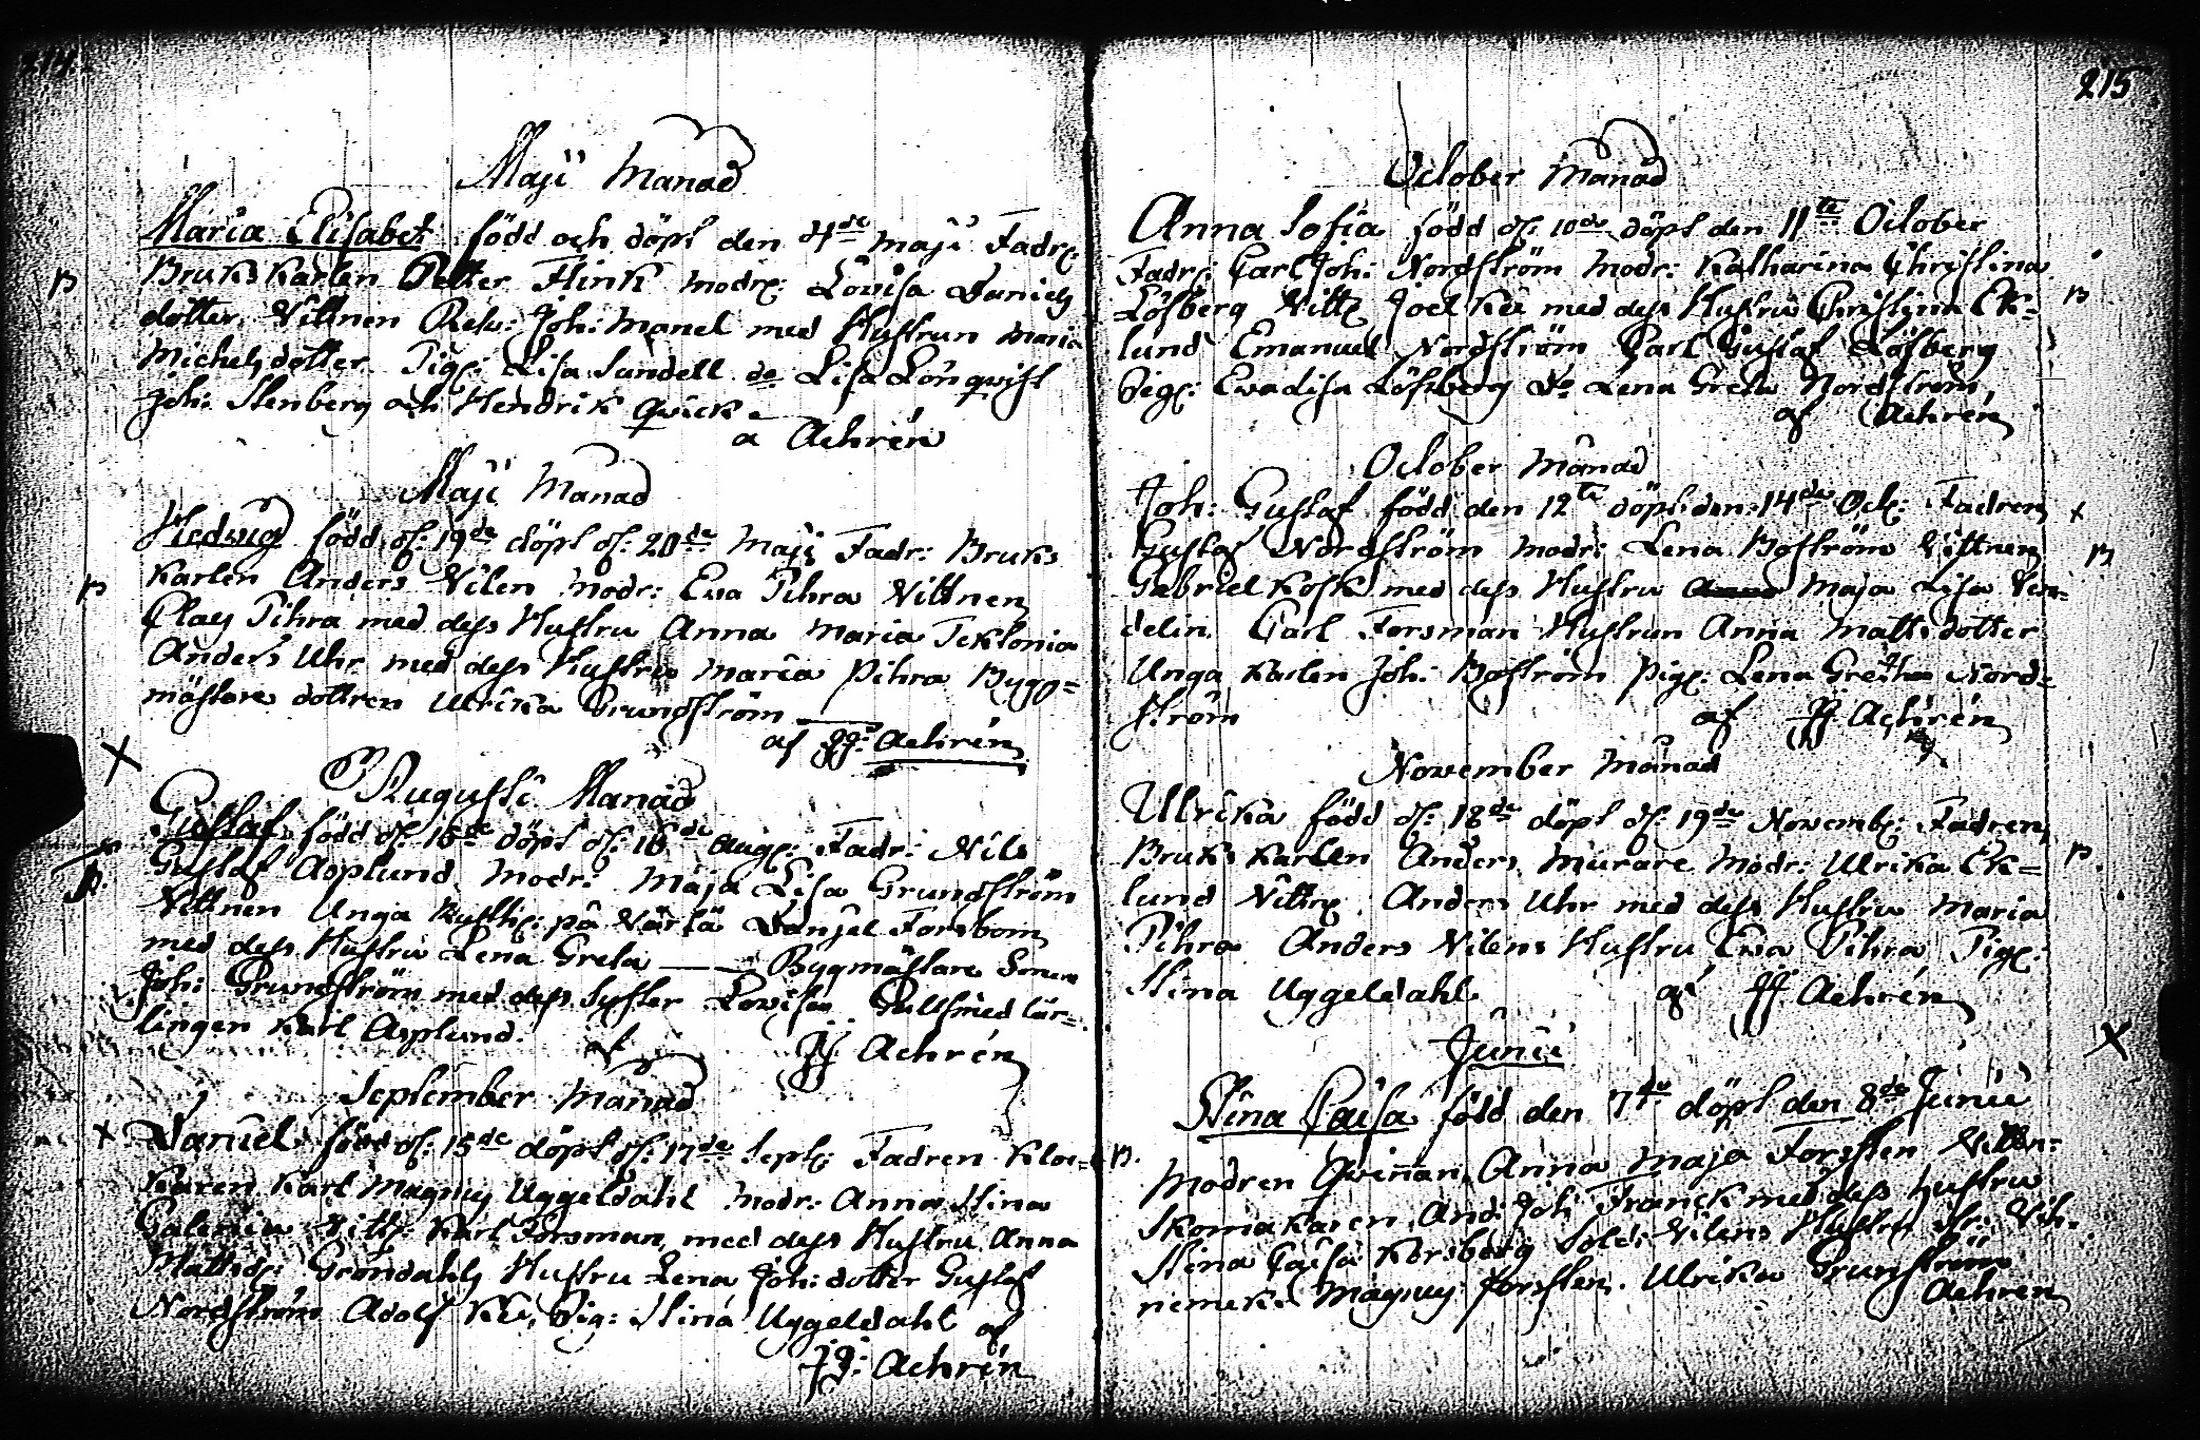 214
Maji Månad
Maria Elisabet född och döpt den 4de maji Fadr:
Bruks Karlen Petter Flink modr: Lovisa Daniels
dotter, Vittnen Rekr: Joh: Manel med Hustrun Maria
Michelsdotter Pig: Lisa Sundell do Lisa Lönqvist
Joh: Stenberg och Hendrik Qvick
a Aehrén
Maji Månad
P
Hedvig född d: 19de döpt d: 20de Maji Fadr: Bruks
Karlen Anders Vilen Modr: Eva Pihra Vittnen
Clas Pihra med dess Hustru Anna Maria Teklonia
Anders Uhr med dess Hustru Maria Pihra Bygg=
mästare dottren Ulrika Grundström
af JJ: Aehrén
P
X
Augusti Månad
Gustaf född d: 15de döpt d: 16de aug: Fadr: Nils
Gustaf Asplund Modr: Maja Lisa Grundström
Vittnen Unga på Värtä Danjel Forsbom
med dess Hustru Lena Greta — Bygmästare Sonen
Joh: Grundström med dess Syster Lovisa Gullsmed lär=
lingen Karl Asplund.
af JJ. Aehrén
P.
September Månad
X Daniel född d: 15de döpt d: 17de Sept: Fadren Kloc=
Karen Karl Magnus Uggeldahl Modr: Anna Stina
Galenia Vitt: Karl Forsman med dess Hustru Anna
Mattsd: Gröndahls Hustru Lena Joh: dotter Gustaf
Nordström Adolf Kli, Pig: Stina Uggeldahl af
JJ: Aehrén
215
October Månad
Anna Sofia född d: 10de döpt den 11te October
Fadr: Carl Joh: Nordström Modr: Katharina Christina
Löfberg Vitt: Joel Kli med dess Hustru Christina Ek=
lund Emanuel Nordström Carl Gustaf Löfberg
Pig: Evadisa Löfberg Do Lena Greta Nordström
af Aehrén
P
October Månad
Joh: Gustaf född den 12te döpt den 14de Oct: Fadren
Gustaf Nordström Modr: Lena Boström Vittnen
Gabriel Kosk med dess Hustru Maja Lisa
delin Carl Forsman Hustrun Anna Mattsdotter
Unga Karlen Joh: Boström Pig: Lena Gretha Nord=
ström af JJ Aehrén
X
P
November Månad
Ulrika född d: 18de döpt d: 19de Novemb: Fadren
Bruks Karlen Anders Murare Modr: Ulrika Ek=
lund Vittn: Anders Uhr med dess Hustru Maria
Pihra Anders Vilens Hustru Eva Pihra Pig:
Stina Uggeldahl af JJ Aehrén
P.
X
Junii
Stina Caisa född den 7de döpt den 8de Junii
P. Modren Qvinnan Anna Maja Forsten Vittn:
Skomakaren And: Joh: Franck med dess Hustru
Stina Caisa Korsberg Sold: Vilens Hustru
Magnus Forsten. Ulrika Grunström
Aehren